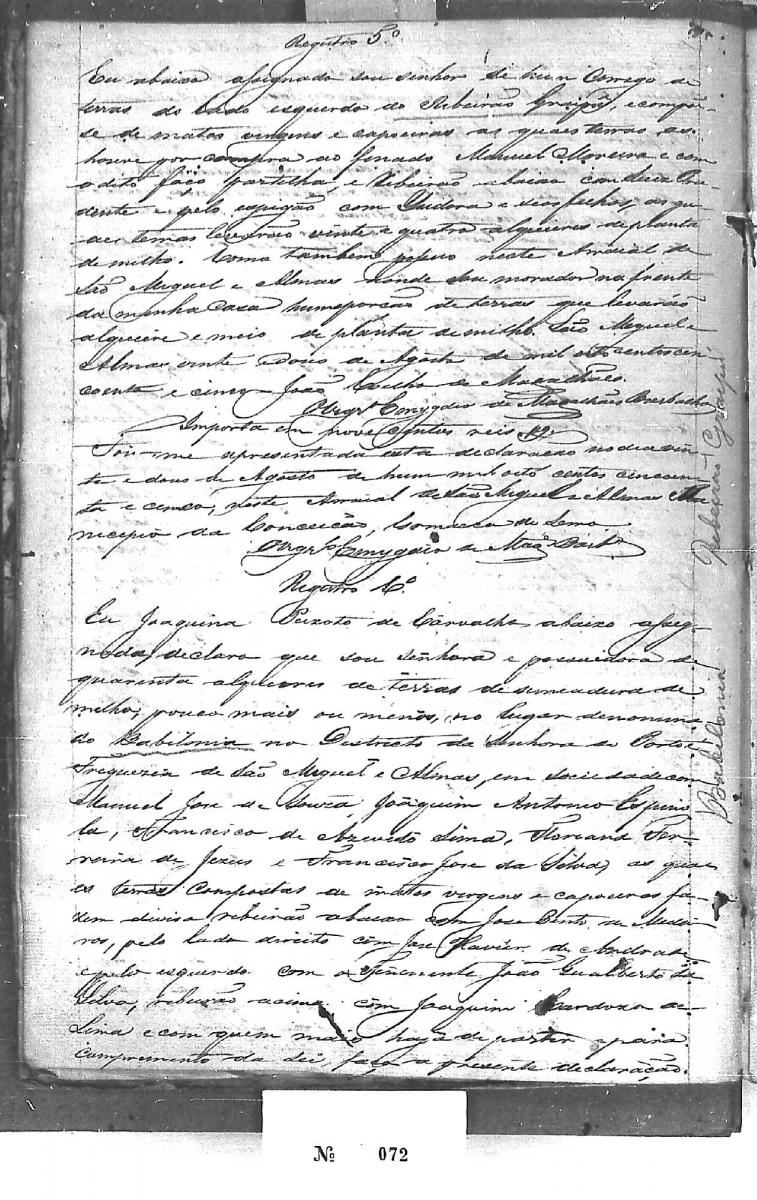 Registro 5º
Eu abaixo assignado sou senhor de hum Corrego de
terras do lado esquerdo do Ribeirão Graipú, e compoe
se de matos virgens e capoeiras as quaes terras as
houve por compra ao finado Manuel Moreira e com
o dito faço partilha, e Ribeirão abaixo com
dente e pelo espigão com Izidora e seus filhos, as qu
aes terras levarão vinte e quatro alqueires de planta
de milho. Como tambem pessuo neste Arraial de
São Miguel e Almas donde sou morador na frente
da minha casa huma porção de terras que levarão
alqueire e meio de planta de milho. São Miguel e
Almas vinte e dous de Agosto de mil oito centos cin
coenta e cinco João Coelho de Magalhães.
Emygdio de Magalhães Barbalho
Importa em nove centos reis
Foi-me apresentada esta declaração no dia vin
te e dous de Agosto de hum mil oito centos cincoen
ta e cinco, neste Arraial de São Miguel e Almas Mu
nicipio da Conceição, Comarca do Serro
Emygdio de Magª Barbº
Registro 6º
Eu Joaquina Peixoto de Carvalho, abaixo assig-
nada, declaro que sou senhora e possuidora de
quarenta alqueires de terras de semeadura de
milho, pouco mais ou menos, no lugar denomina
do Babilonia no Destricto da Senhora do Porto e
Freguezia de São Miguel e Almas, em sociedade com
Manuel Jose de Souza, Joaquim Antonio Espino
la, Francisco de Azevedo Lima, Floriana Fer-
reira de Jezus e Francisco Jose da Silva, as qua
es terras compostas de matos virgens e capoeiras fa
zem divisa ribeirão abaixo com Jose Bento de Medei
ros, pelo lado direito com Jose Xavier de Andrade
e pelo esquerdo com o Tenemente João Gualberto da
Silva, ribeirão acima com Joaquim Cardozo de
Lima e com quem mais haja de partir e para
comprimento da Lei, faço a presente declaração.
Ribeirão Graipú
Babilonia
Nº 072